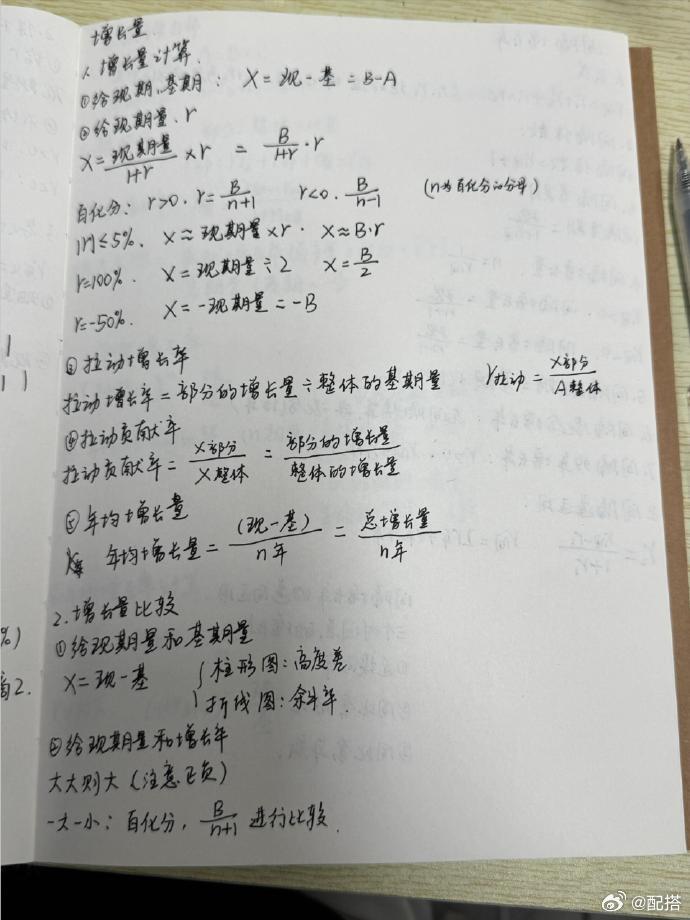 增长量
1. 增长量计算.
①给现期、基期: X=现-基=B-A
②给现期量、r
X=现期量/1+r ×r = B/1+r ·r
百化分: r>0. r=B/n+1 r<0. B/n-1 (n为百化分的分母)
|r|≤5%. X≈现期量×r. X≈B·r
r=100%. X=现期量÷2 X=B/2
r=-50%. X=-现期量=-B
③拉动增长率
拉动增长率=部分的增长量÷整体的基期量 r拉动=X部分/A整体
④拉动贡献率
拉动贡献率=X部分/X整体=部分的增长量/整体的增长量
⑤年均增长量
年均增长量=(现-基)/n年=总增长量/n年
2.增长量比较
①给现期量和基期量
X=现-基 { 柱形图:高度差
折线图:余斗率.
②给现期量和增长率
大大则大(注意正负)
一大一小:百化分, B/n+1 进行比较.
%)
2.
@配搭